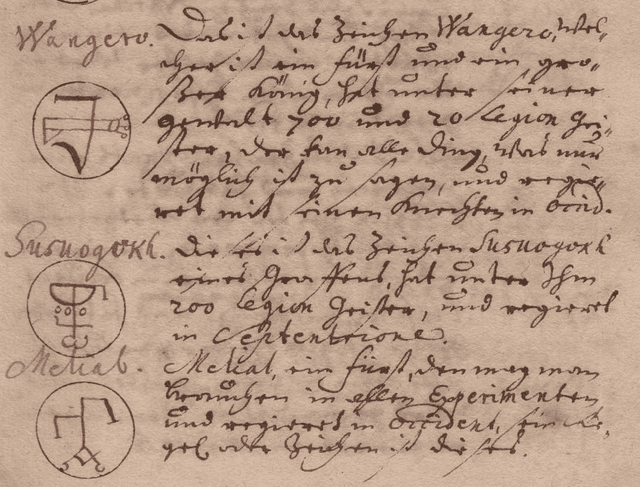 Wangero.
Das ist das Zeichen Wangero, wel-
cher ist ein fürst und ein gro-
ßer König, hat unter seiner
gewalt 700 und 20 Legion Gei-
ster, der kan alle Ding, was nur
möglich ist zu sagen, und regie-
ret mit seinen Knechten in Occid.
Susuogorh.
Die es ist das Zeichen Susuogorh
eines Graffens, hat unter Ihm
200 Legion Geister, und regieret
in Septentrione.
Melial.
Melial, ein fürst, den mag man
brauchen in allen Experimenten
und regieret in Occident, sein Sie-
gel oder Zeichen ist dieses.